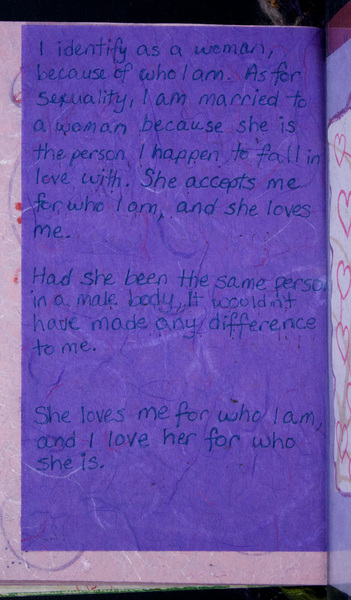 I identify as a woman,
because of who I am. As for
sexuality, I am married to
a woman because she is
the person I happen to fall in
love with. She accepts me
for who I am, and she loves
me.
Had she been the same person
in a male body, It wouldn't
have made any difference
to me.
She loves me for who I am,
and I love her for who
she is.